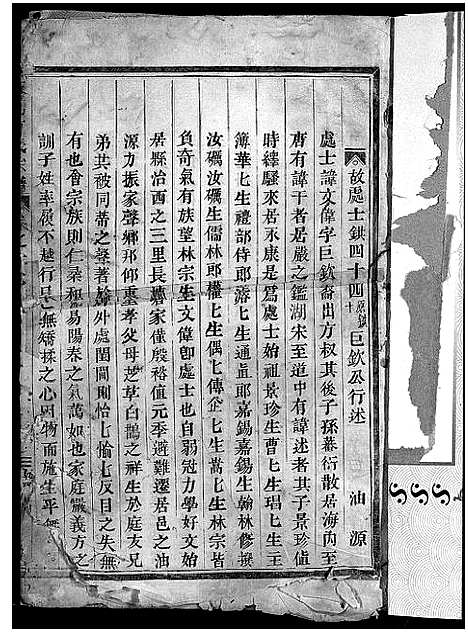 故處士鉷四十四巨欽公行述
油源
處士諱文偉字巨欽裔出方叔其後子孫蕃衍散居海內至
唐有諱干者居嚴之鑑湖宋至道中有諱述者其子景珍值
時繹騷來居永康是為處士始祖景珍生曹七生琩七生王
簿華七生禮部侍郎滋七生通直郎嘉錫嘉錫生翰林修撰
汝礪汝礪生儒林郎權七生偶七傳企七生嵩七生林宗皆
負奇氣有族望林宗生文偉卽處士也自弱冠力學好文始
居縣治西之三里長壽家僅殷裕值元季避難遷居邑之油
源力振家聲鄉邦仰重孝父母芝草白鵲之祥生於庭友兄
弟共被同蒂之聲著於外處閨閫則怡七愉七反目之失無
有也會宗族則仁柔和易陽春之氣藹如也家庭嚴義方之
訓子姓率履不越行是無矯揉之心因物而施生平